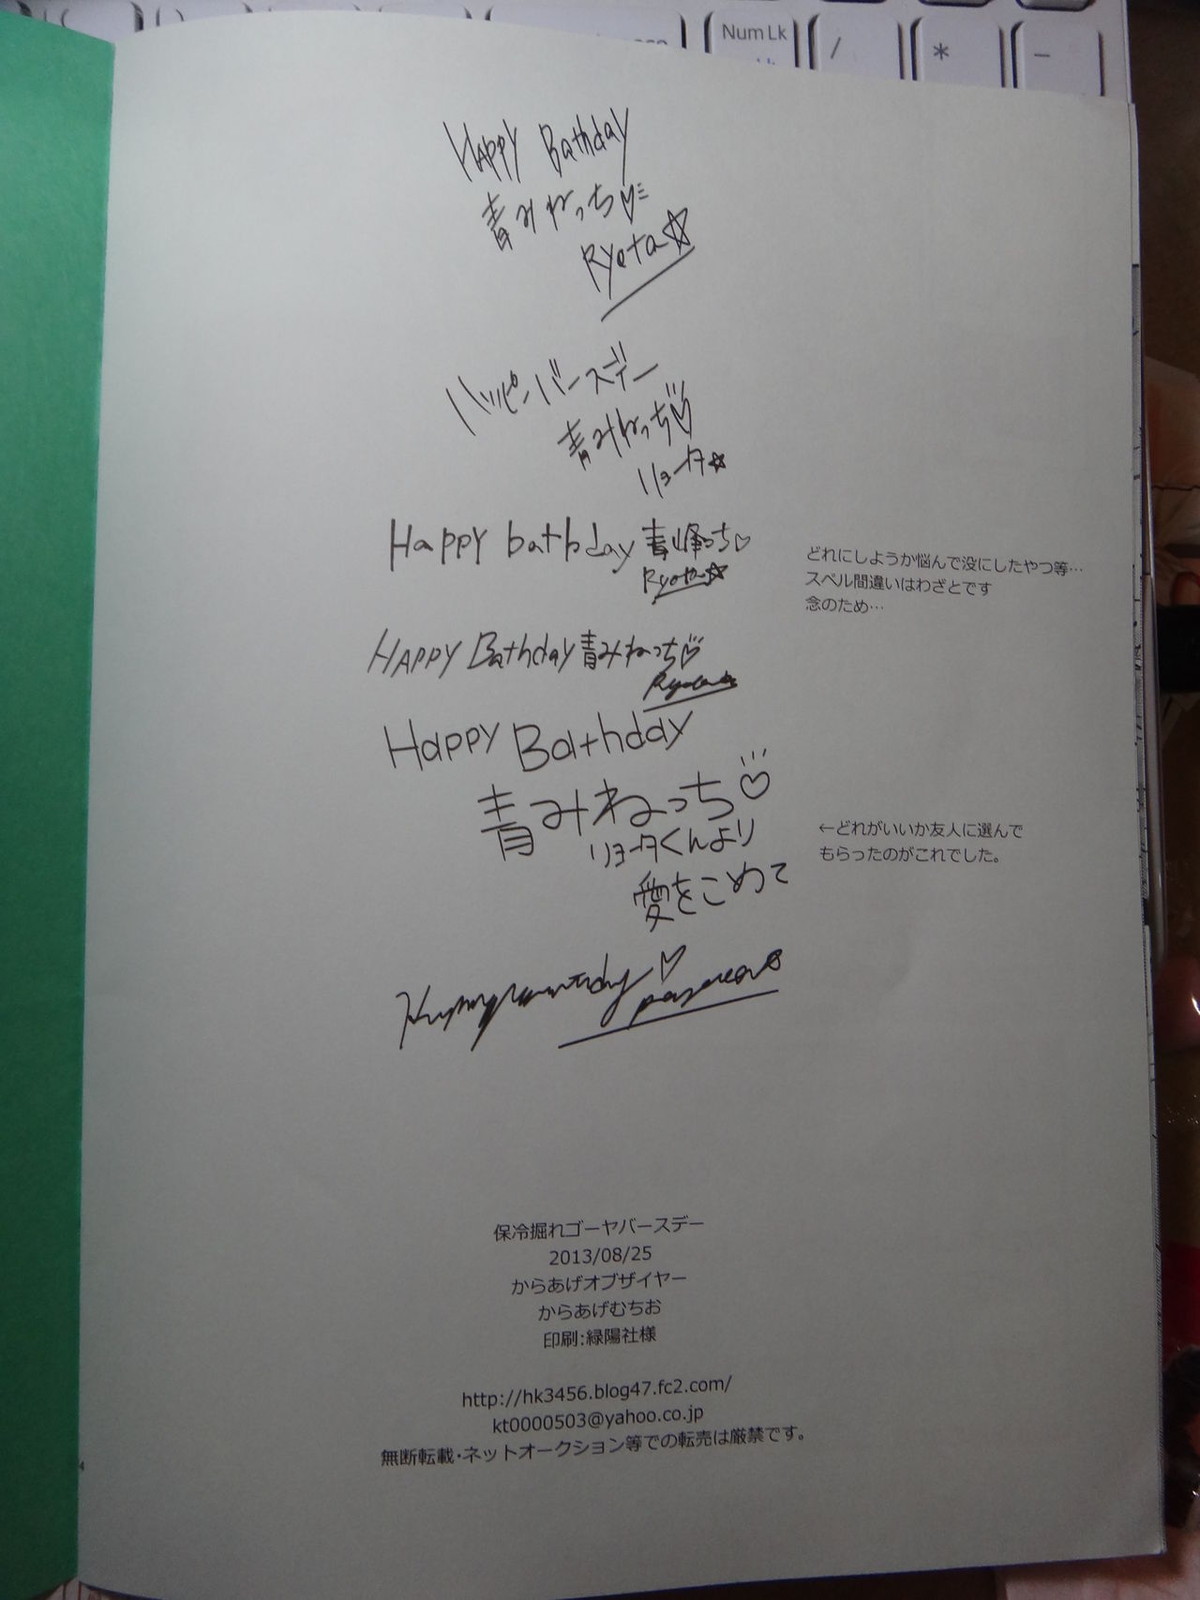 Num Lk
/
*
-
Happy Bathday
青みねっち♡
Ryota☆
ハッピーバースデー
青みねっち♡
リョータ☆
Happy bathday 青峰っち♡
Ryota☆
どれにしようか悩んで没にしたやつ等…
スペル間違いはわざとです
念のため…
HAPPY Bathday 青みねっち♡
Ryota☆
Happy Bathday
青みねっち♡
リョータくんより
愛をこめて
←どれがいいか友人に選んで
もらったのがこれでした。
保冷掘れゴーヤバースデー
2013/08/25
からあげオブザイヤー
からあげむちお
印刷:緑陽社様
http://hk3456.blog47.fc2.com/
kt0000503@yahoo.co.jp
無断転載・ネットオークション等での転売は厳禁です。
4